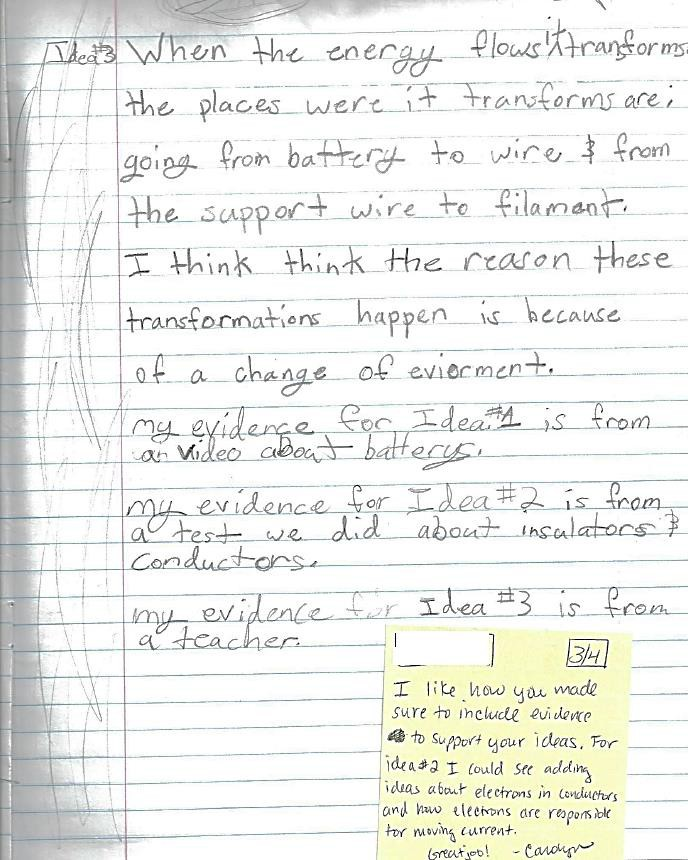 Idea #3 When the energy flows it transforms
the places were it transforms are;
going from battery to wire & from
the support wire to filament.
I think think the reason these
transformations happen is because
of a change of eviorment.
my evidence for Idea #1 is from
an video about batterys.
my evidence for Idea #2 is from
a test we did about insulators &
conductors.
my evidence for Idea #3 is from
a teacher.
3/4
I like how you made
sure to include evidence
to support your ideas. For
idea #2 I could see adding
ideas about electrons in conductors
and how electrons are responsible
for moving current.
Great job! - Carolyn